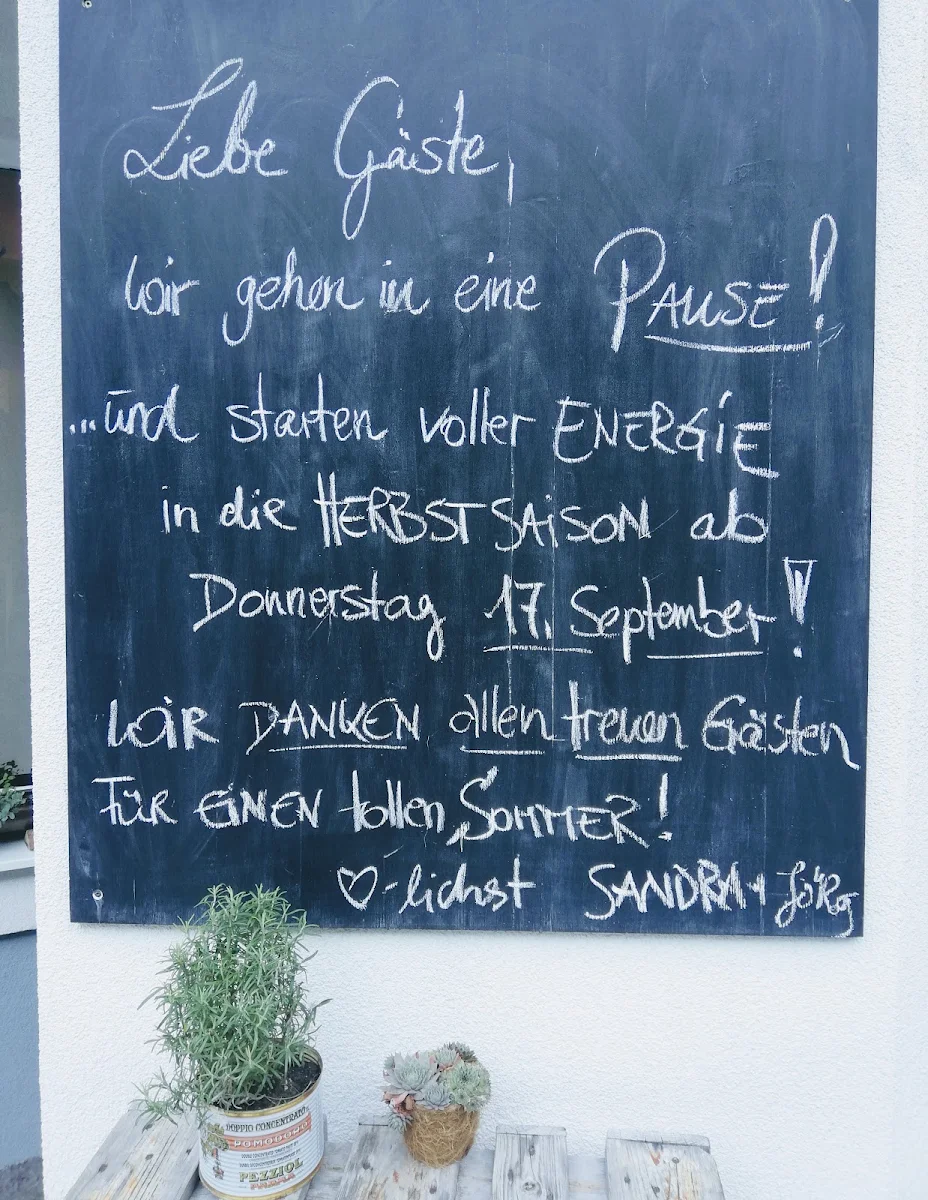 Liebe Gäste,
wir gehen in eine PAUSE!
...und starten voller ENERGiE
in die HERBSTSAiSON ab
Donnerstag 17. September!
WiR DANKEN allen treuen Gästen
FÜR EiNEN tollen SOMMER!
♡-lichst SANDRA + JöRg
DOPPIO CONCENTRATO
POMODORO
PEZZIOL
PARMA